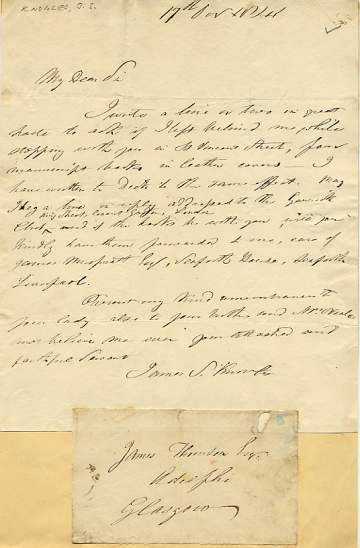 KNOWLES, J. S.
17th Nov 1844
My Dear Sir
I write a line or two in great
haste to ask if I left behind me, while
stopping with you in St Vincent Street, four
manuscript books in leather covers — I
have written to to the same effect. May
I beg a line in reply addressed to the Garrick
King Street, Covent Garden, London
Club, and if the books be with you, will you
kindly have them forwarded to me, care of
James Muspratt Esqr, Seaforth House, Seaforth
Liverpool.
Present my kind remembrances to
your lady also to your mother and
and believe me ever your attached and
faithful Servant
James S. Knowles
James Hunter Esqr.
Adelphi
Glasgow